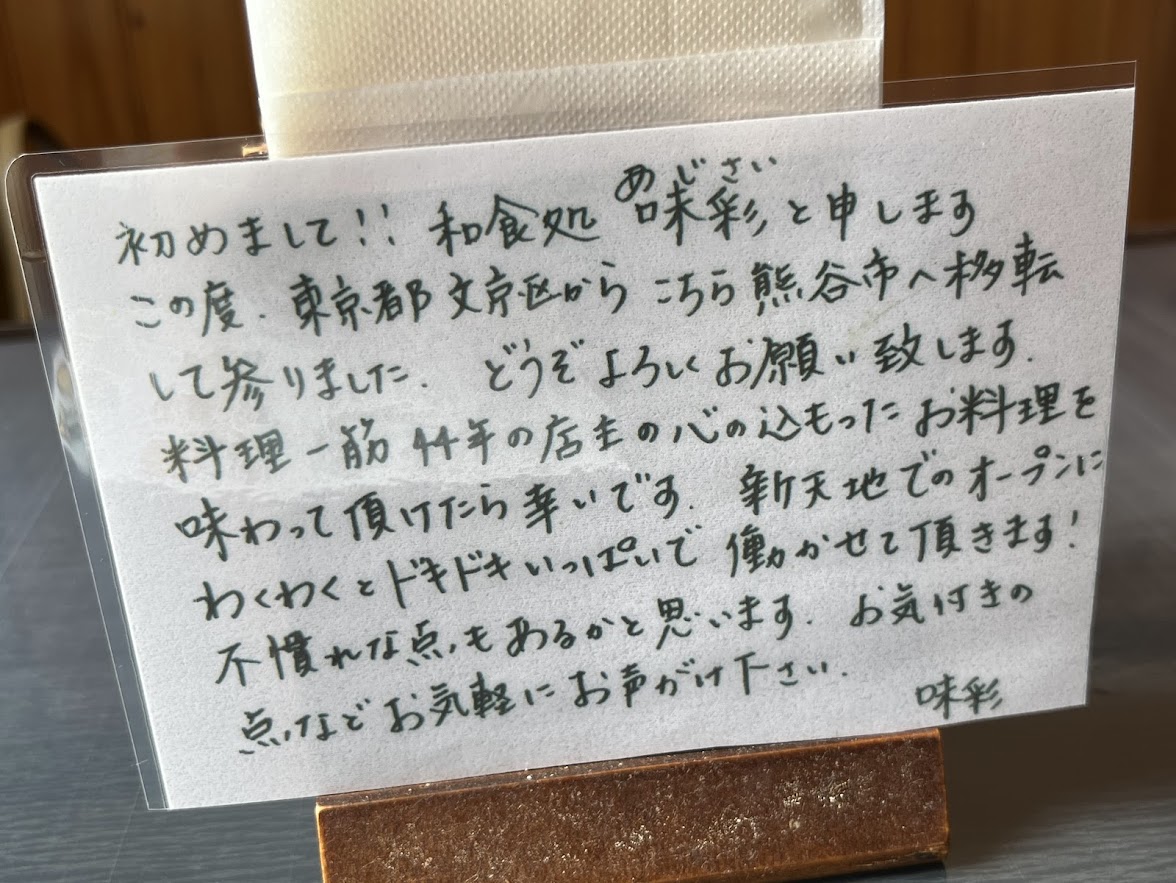 あじさい
初めまして!! 和食処 味彩と申します
この度、東京都文京区からこちら熊谷市へ移転
して参りました、どうぞよろしくお願い致します。
料理一筋44年の店主の心の込もったお料理を
味わって頂けたら幸いです。新天地でのオープンに
わくわくとドキドキいっぱいで働かせて頂きます!
不慣れな点もあるかと思います。お気付きの
点などお気軽にお声がけ下さい。
味彩